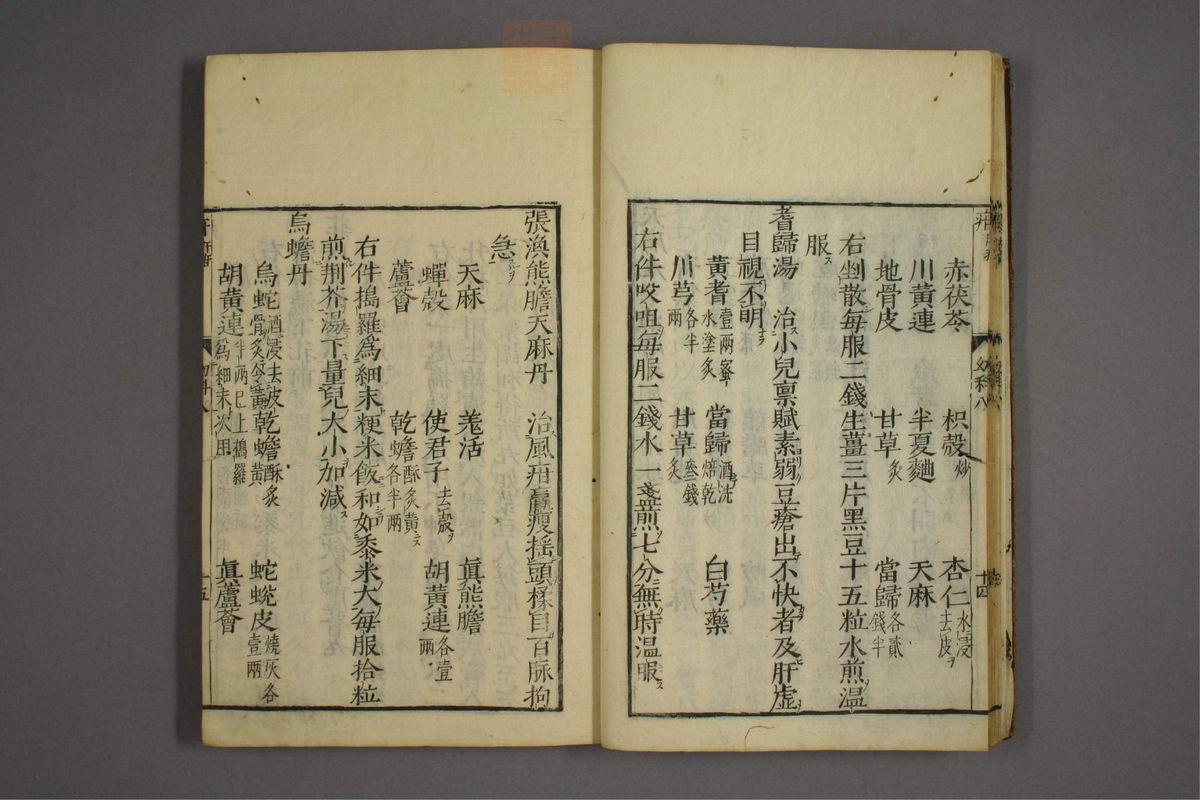 赤茯苓 枳殼炒 杏仁水浸去皮
川黃連 半夏麯 天麻
地骨皮 甘草炙 當歸各貳錢半
右剉散每服二錢生薑三片黑豆十五粒水煎溫
服
耆歸湯 治小兒禀賦素弱豆瘡出不快者及肝虛
目視不明
黃耆壹兩蜜水塗炙 當歸酒洗焙乾 白芍藥
川芎各半兩 甘草炙叁錢
右件㕮咀每服二錢水一盞煎七分無時溫服
幼科八
十四
張渙熊膽天麻丹 治風疳羸瘦搖頭揉目百脉拘
急
天麻 羗活 眞熊膽
蟬殼 使君子去殼 胡黃連各壹兩
蘆薈 乾蟾酥炙黃各半兩
右件搗羅為細末粳米飯和如黍米大每服拾粒
煎荆芥湯下量兒大小加減
烏蟾丹
烏蛇酒浸去皮骨炙令黃 乾蟾酥炙黃 蛇蛻皮燒灰各壹兩
胡黃連半兩已上搗羅為細末次用 眞蘆薈
十五